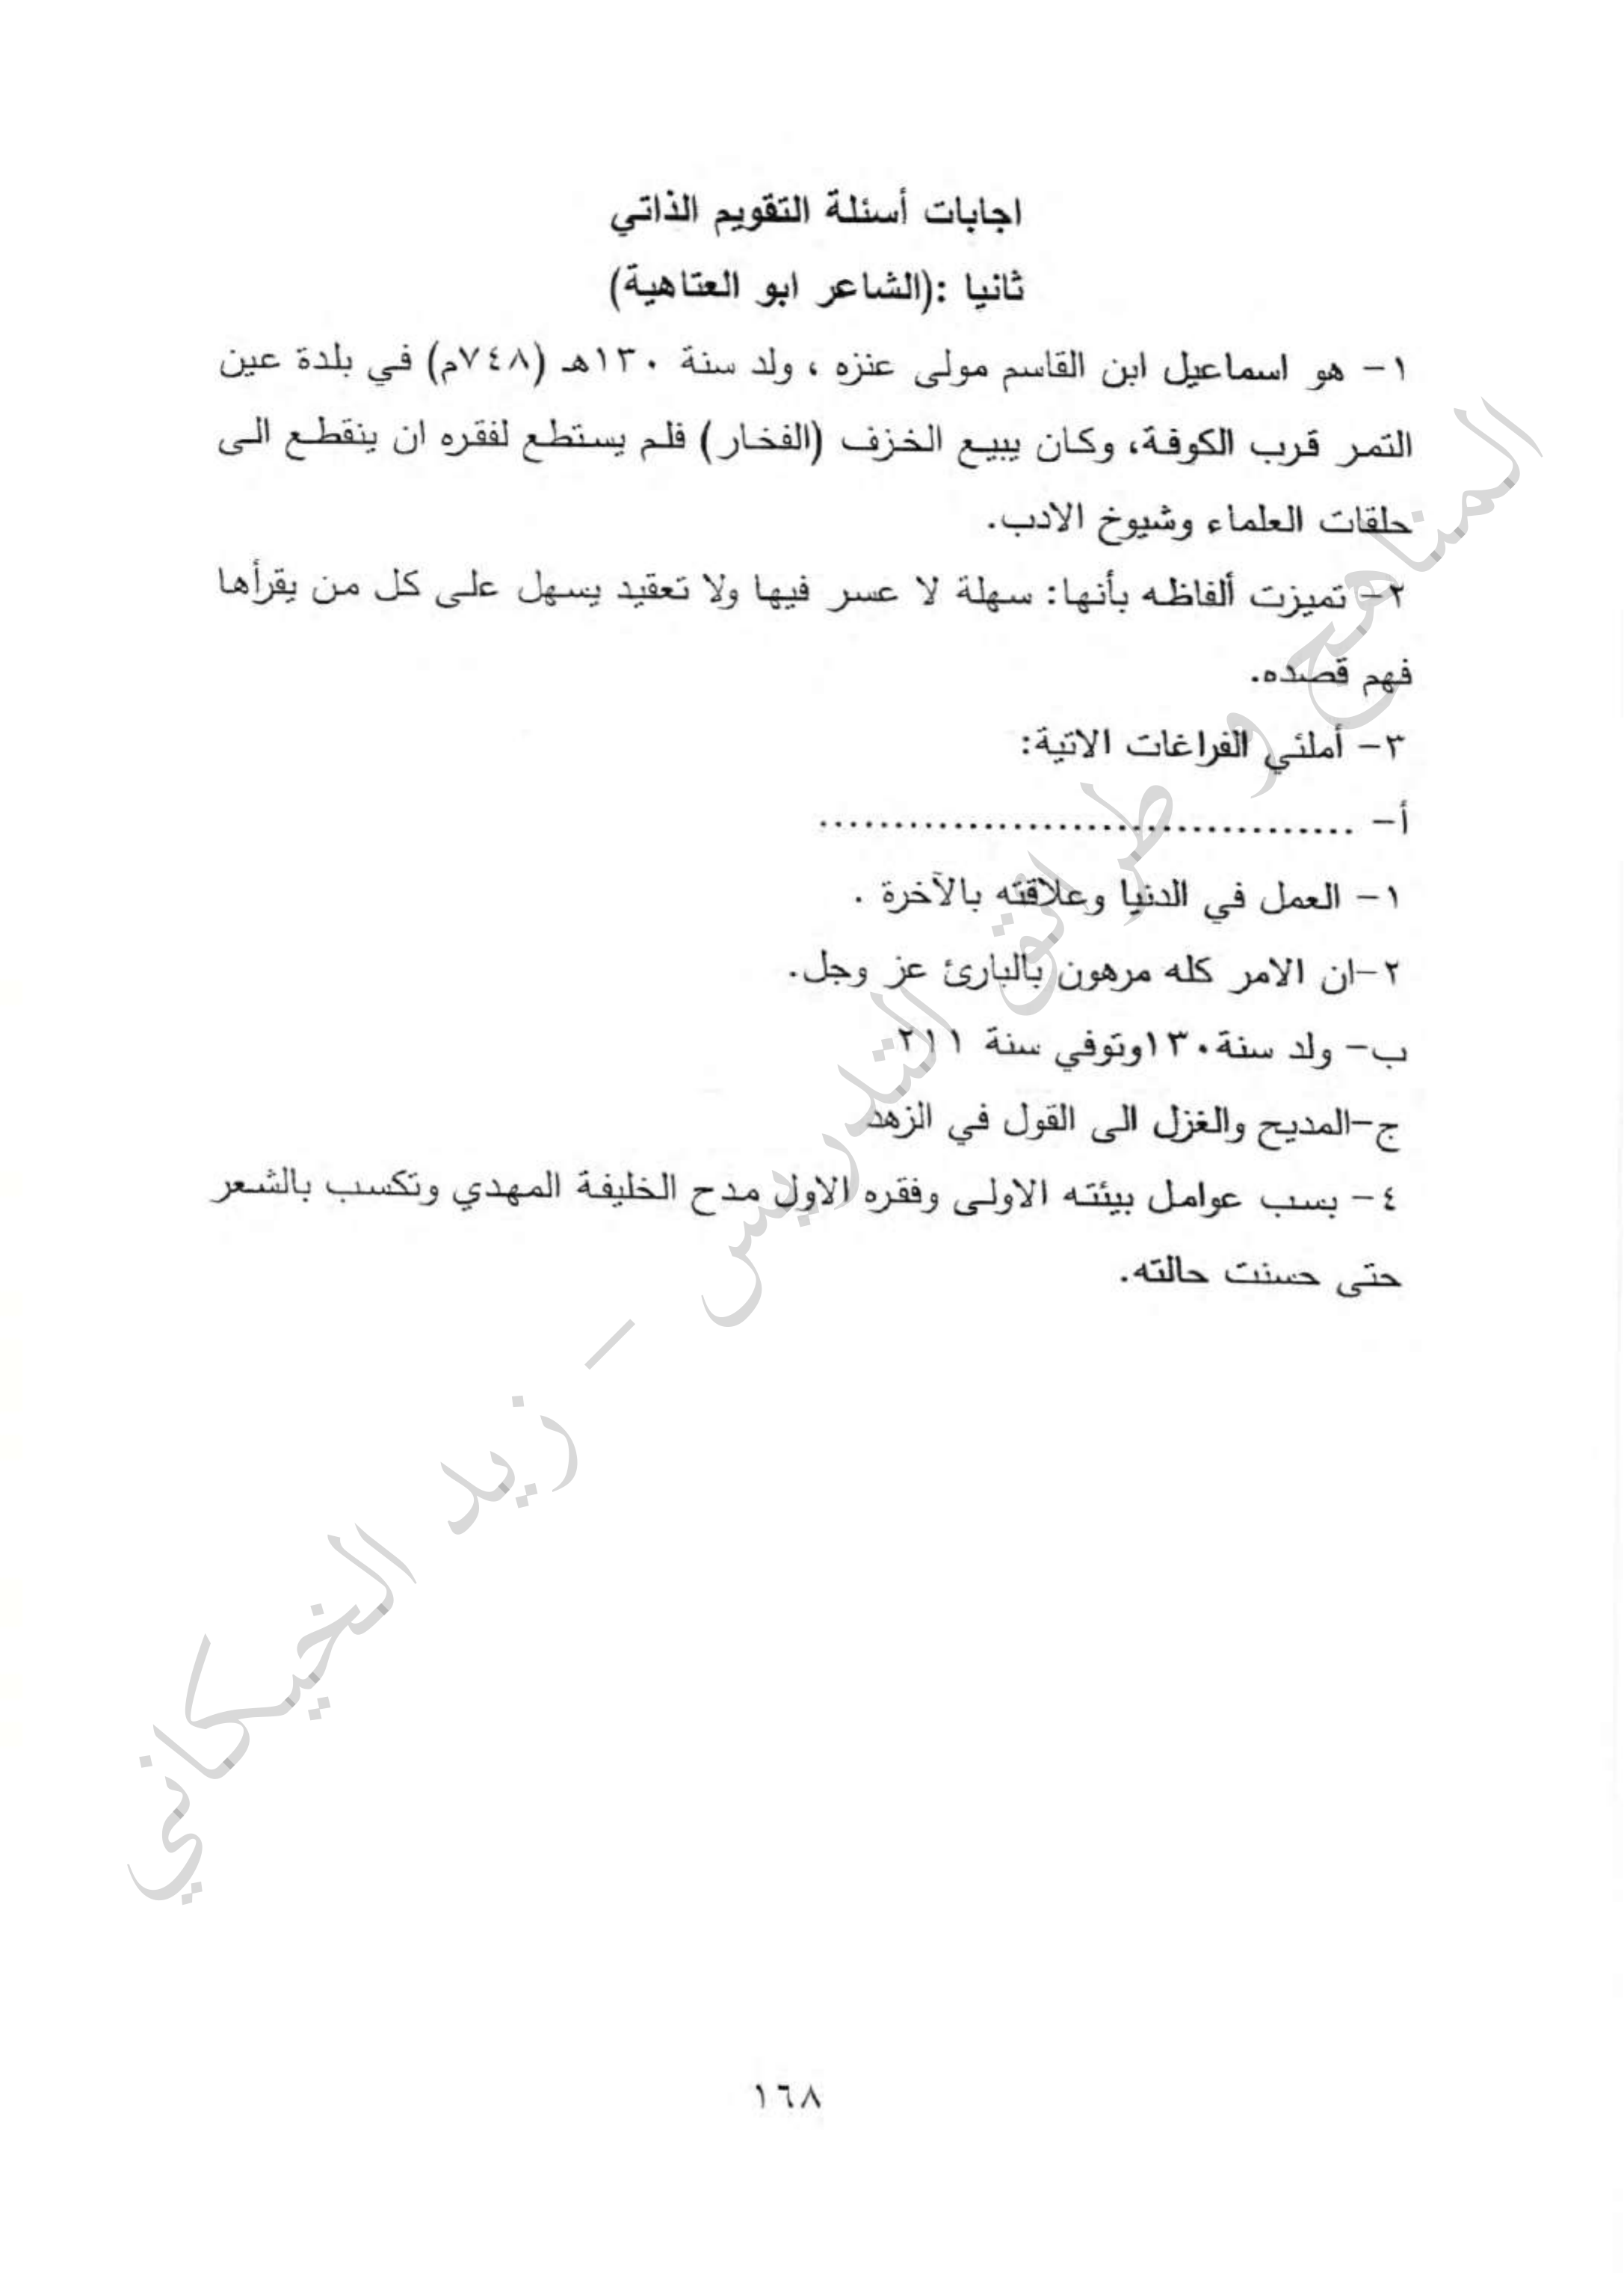 اجابات أسئلة التقويم الذاتي
ثانيا :(الشاعر ابو العتاهية)
١- هو اسماعيل ابن القاسم مولى عنزه ، ولد سنة ١٣٠هـ (٧٤٨م) في بلدة عين
التمر قرب الكوفة، وكان يبيع الخزف (الفخار) فلم يستطع لفقره ان ينقطع الى
حلقات العلماء وشيوخ الادب.
٢- تميزت ألفاظه بأنها: سهلة لا عسر فيها ولا تعقيد يسهل على كل من يقرأها
فهم قصده.
٣- أملئي الفراغات الاتية:
أ- ....................................
١- العمل في الدنيا وعلاقته بالآخرة .
٢-ان الامر كله مرهون بالبارئ عز وجل.
ب- ولد سنة١٣٠وتوفي سنة ٢١١
ج-المديح والغزل الى القول في الزهد
٤- بسب عوامل بيئته الاولى وفقره الاول مدح الخليفة المهدي وتكسب بالشعر
حتى حسنت حالته.
المناهج و طرائق التدريس - زيد الخيكاني
١٦٨